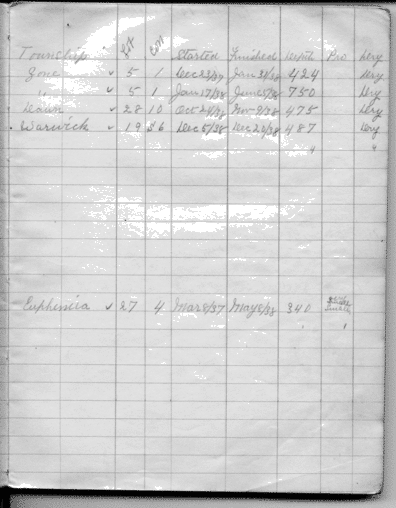 Township Lot Con Started Finished Depth Pro Dry
Zone ✓ 5 1 Dec 23/37 Jan 31/38 424 Dry
" ✓ 5 1 Jan 17/38 June 5/38 750 Dry
✓ 28 10 Oct 24/38 Nov 9/38 475 Dry
Warwick ✓ 19 6 Dec 5/38 Dec 20/38 487 Dry
" "
Euphemia ✓ 27 4 Mar 8/37 May 8/38 340